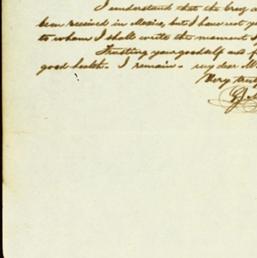 I understand that the
been received in Mexico, but I have not
to whom I shall write the moment
Trusting yourself and
good health. I remain - my dear
Very truly